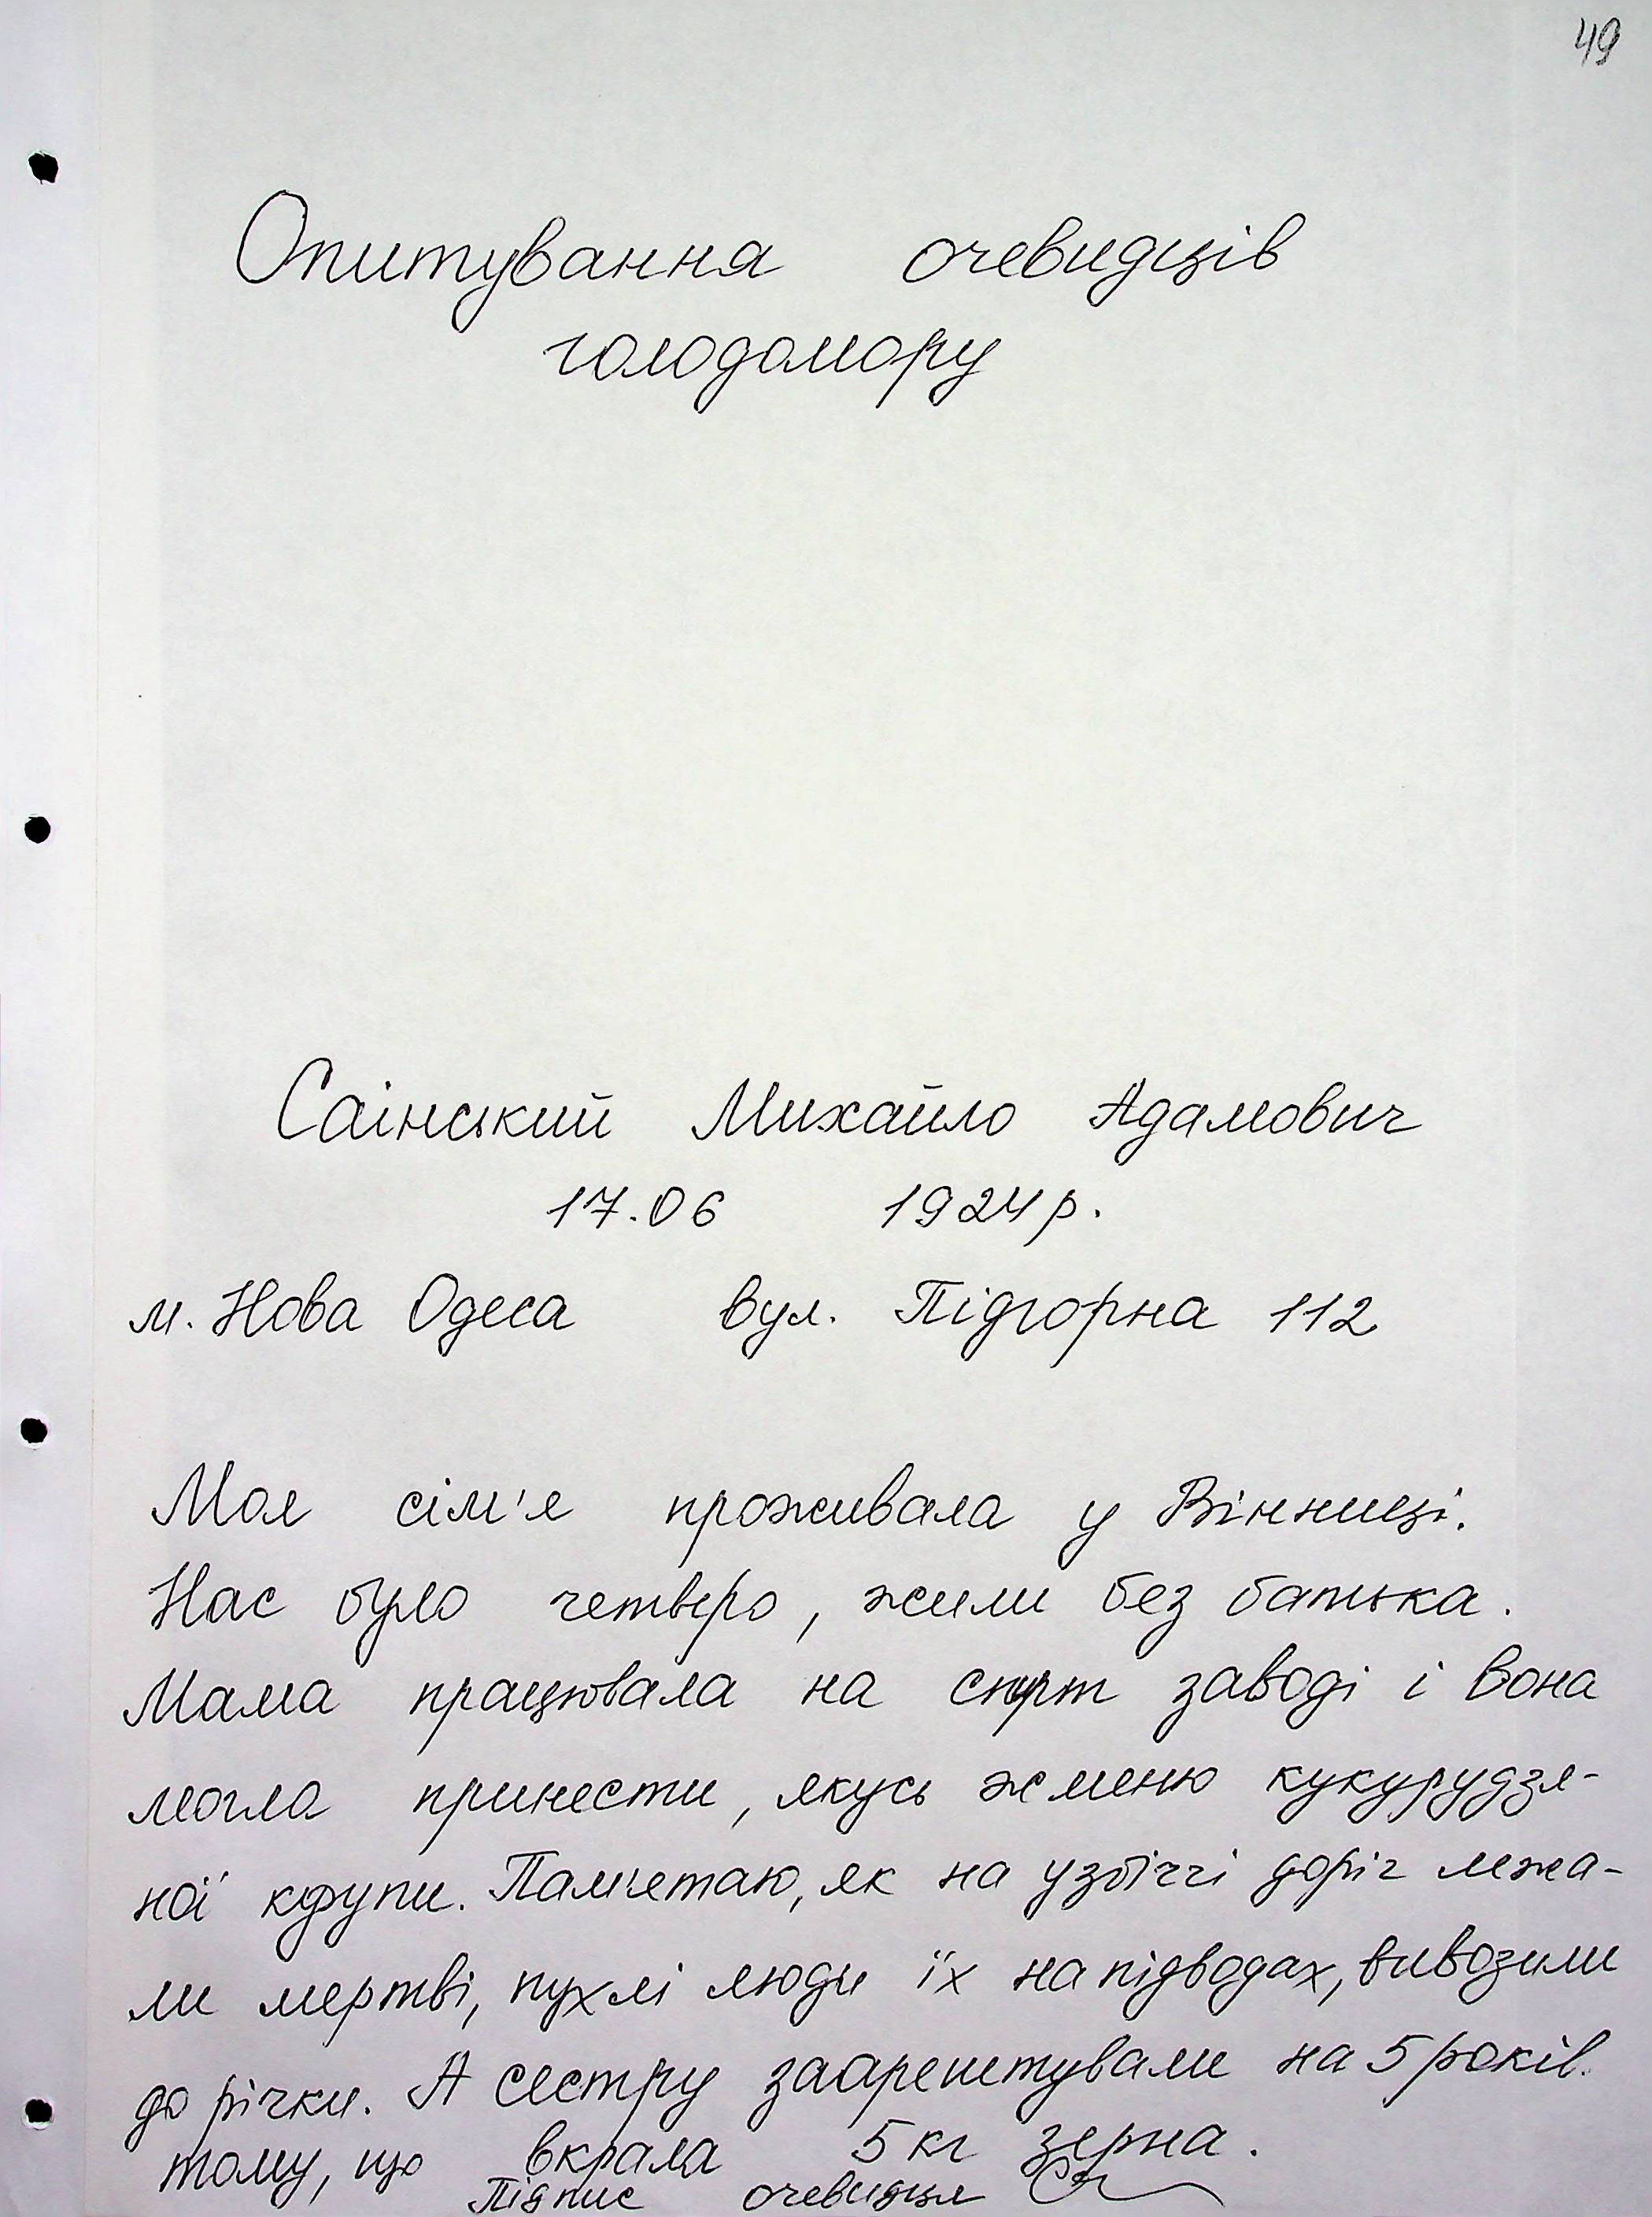 49
Опитування очевидців
голодомору
Саінський Михайло Адамович
17.06 1924р.
м. Нова Одеса вул. Підгорна 112
Моя сім'я проживала у Вінниці.
Нас було четверо, жили без батька.
Мама працювала на спирт заводі і вона
могла принести, якусь жменю кукурудзя-
ної крупи. Пам'ятаю, як на узбіччі доріг лежа-
ли мертві, пухлі люди їх на підводах, вивозили
до річки. А сестру заарештували на 5 років.
тому, що вкрала 5 кг зерна.
Підпис очевидця